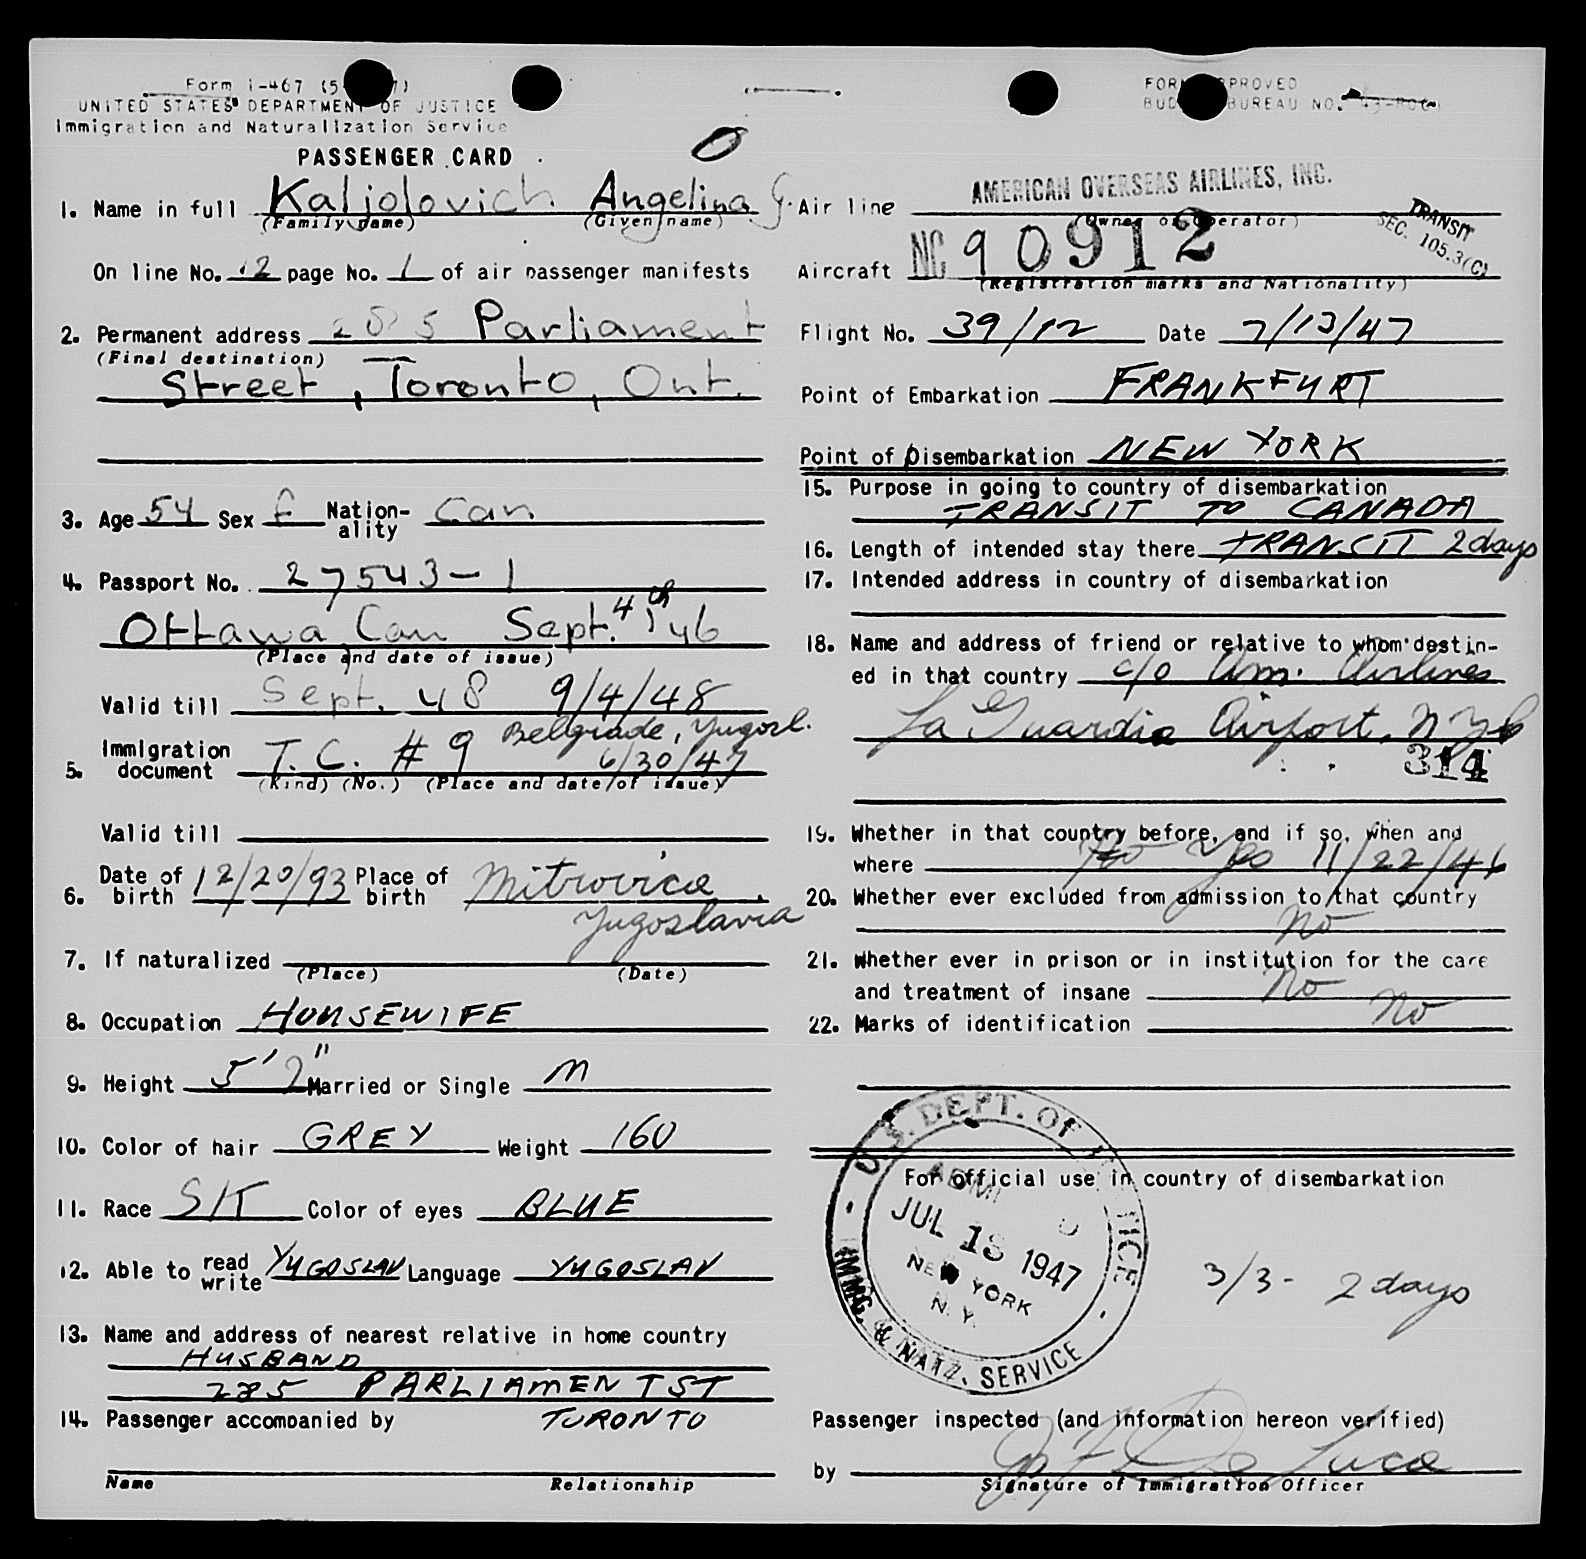 Form I-467 (5
UNITED STATES DEPARTMENT OF JUSTICE
Immigration and Naturalization Service
PASSENGER CARD
FORM APPROVED
BUDGET BUREAU NO.
1. Name in full Kaljolovich Angelina G.
(Family name) (Given name)
On line No. 12 page No. 1 of air passenger manifests
2. Permanent address 285 Parliament
(Final destination)
Street, Toronto, Ont.
3. Age 54 Sex f Nation-ality Can
4. Passport No. 27543-1
Ottawa Can Sept. 4th 46
(Place and date of issue)
Valid till Sept. 48 9/4/48
Belgrade, Yugosl.
5. Immigration document T.C. # 9 6/30/47
(Kind) (No.) (Place and date of issue)
Valid till
6. Date of birth 12/20/93 Place of birth Mitrovica
Yugoslavia
7. If naturalized
(Place) (Date)
8. Occupation HOUSEWIFE
9. Height 5' 2" Married or Single M
10. Color of hair GREY Weight 160
11. Race Color of eyes BLUE
12. Able to read write YUGOSLAV Language YUGOSLAV
13. Name and address of nearest relative in home country
HUSBAND
285 PARLIAMENT ST
14. Passenger accompanied by TORONTO
Name Relationship
Air line AMERICAN OVERSEAS AIRLINES, INC.
(Owner or Operator)
TRANSIT
SEC. 105.3(C)
Aircraft NC 90912
(Registration marks and Nationality)
Flight No. 39/12 Date 7/13/47
Point of Embarkation FRANKFURT
Point of Disembarkation NEW YORK
15. Purpose in going to country of disembarkation
TRANSIT TO CANADA
16. Length of intended stay there TRANSIT 2 days
17. Intended address in country of disembarkation
18. Name and address of friend or relative to whom destin-
ed in that country c/o Am. Airlines
La Guardia Airport, NYC
314
19. Whether in that country before, and if so, when and
where No Yes 11/22/46
20. Whether ever excluded from admission to that country
No
21. Whether ever in prison or in institution for the care
and treatment of insane No
22. Marks of identification No
For official use in country of disembarkation
U.S. DEPT. OF JUSTICE
ADMITTED
JUL 13 1947
NEW YORK
N.Y.
IMMG. & NATZ. SERVICE
3/3- 2 days
Passenger inspected (and information hereon verified)
by De Luca
Signature of Immigration Officer